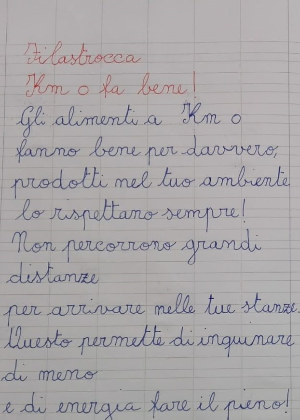 Filastrocca
Km 0 fa bene!
Gli alimenti a Km 0
fanno bene per davvero,
prodotti nel tuo ambiente
lo rispettano sempre!
Non percorrono grandi
distanze
per arrivare nelle tue stanze.
Questo permette di inquinare
di meno
e di energia fare il pieno!